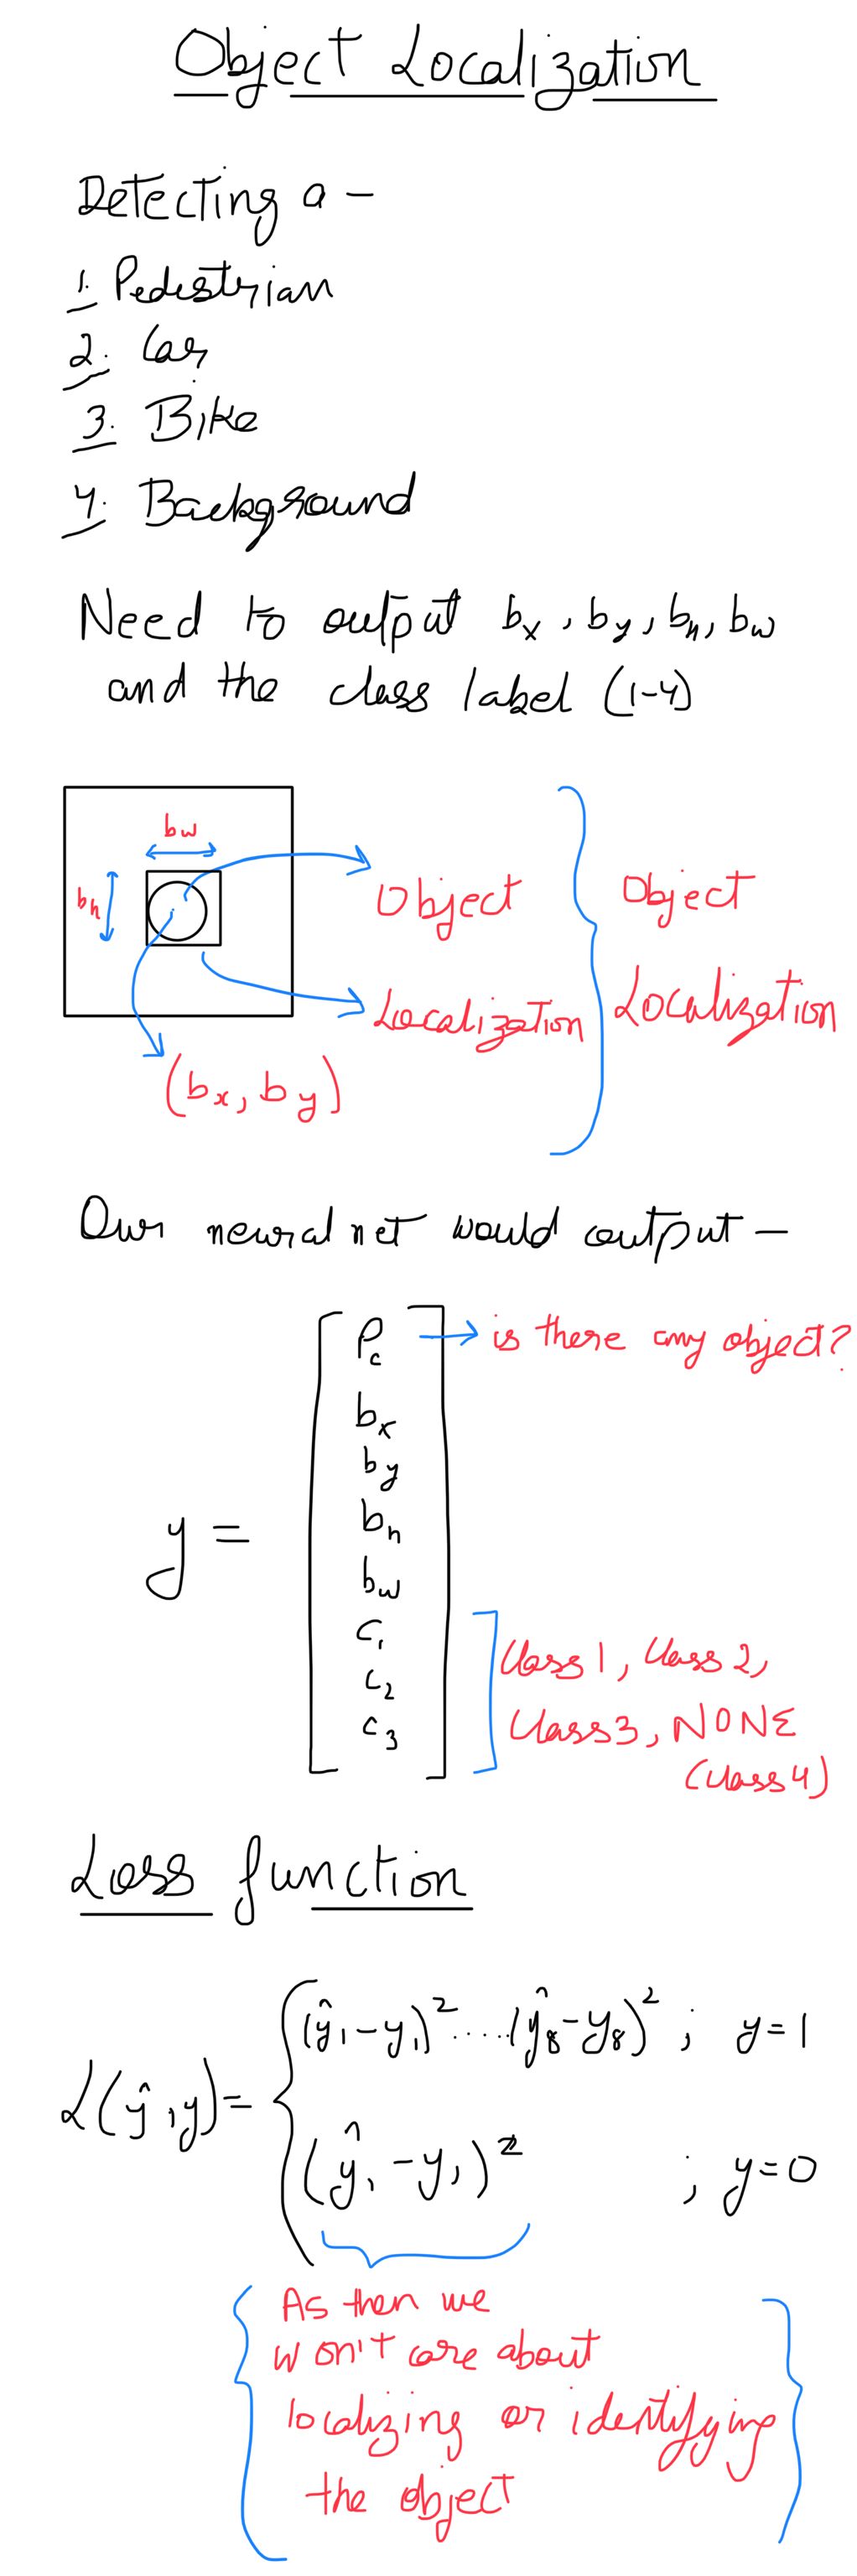 Object Localization
Detecting a -
1. Pedestrian
2. Car
3. Bike
4. Background
Need to output bx, by, bh, bw
and the class label (1-4)
bw
bh
Object
Localization
(bx, by)
Object
Localization
Our neural net would output -
y = [
Pc → is there any object?
bx
by
bh
bw
c1
c2
c3
]
Class 1, Class 2,
Class 3, NONE
(Class 4)
Loss function
L(ŷ, y) = {
(ŷ1 - y1)² ..... (ŷ8 - y8)² ; y = 1
(ŷ1 - y1)² ; y = 0
As then we
won't care about
localizing or identifying
the object